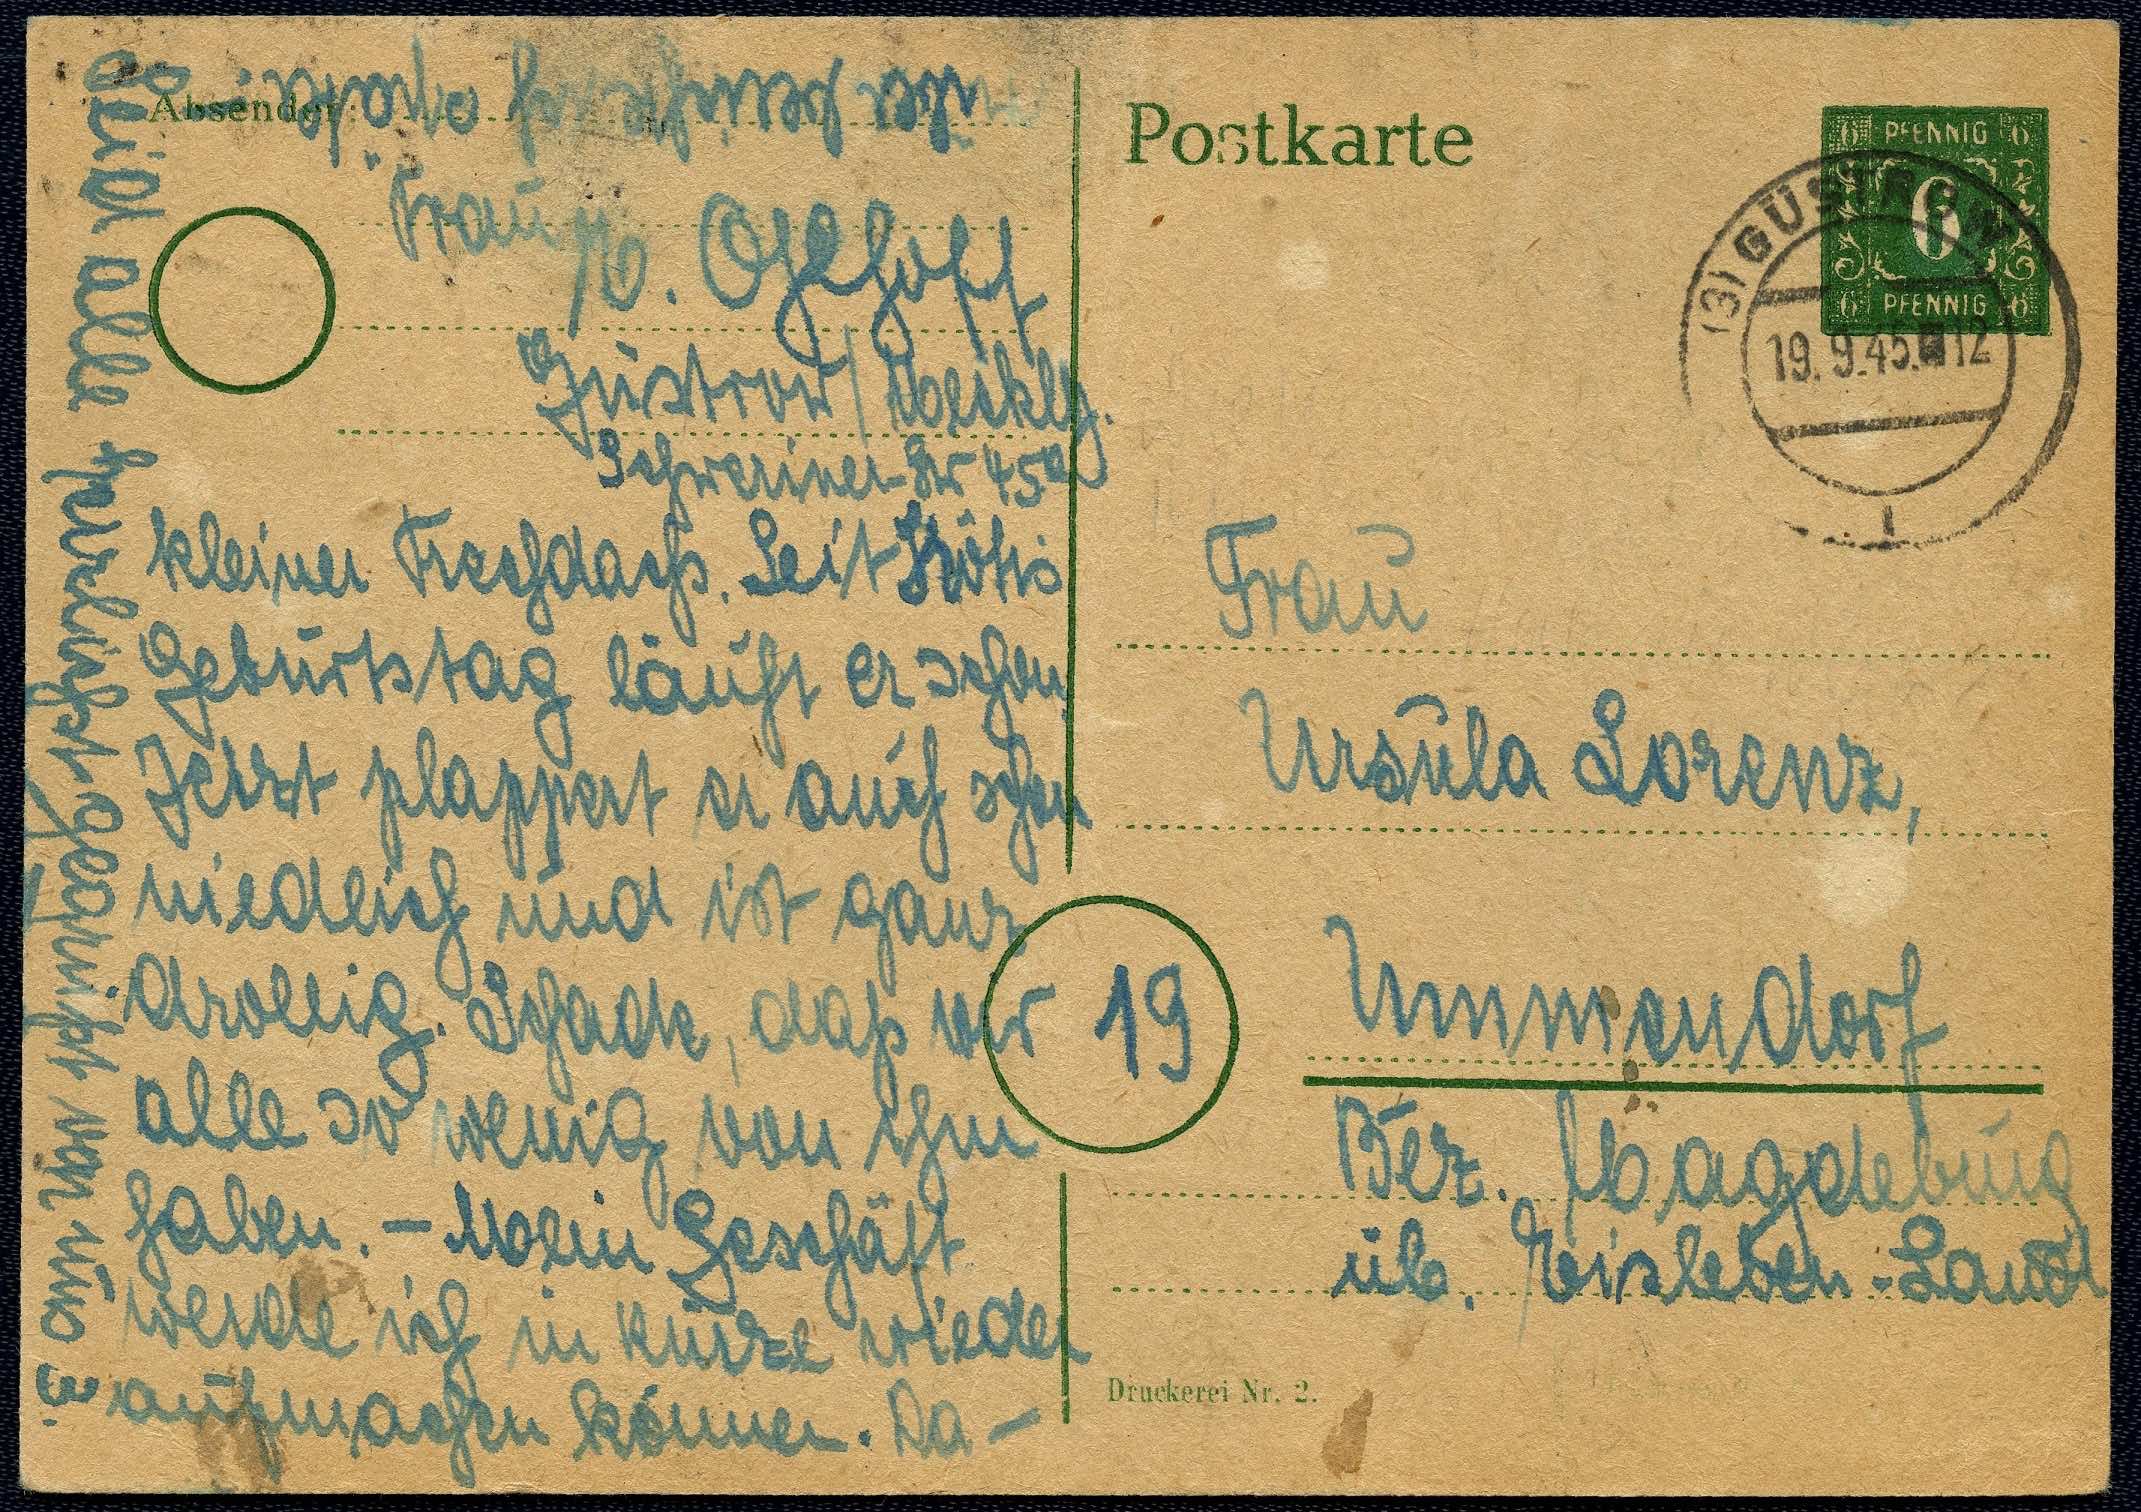 Absender:
Frau M. Ogehoff
Güstrow / Meckly.
Schweriner Str 45a
kleiner Frechdachs. Seit
Geburtstag läuft er schon,
Jetzt plappert er auch schon
niedlich und ist ganz
drollig. Schade, daß wir
alle so wenig von ihm
haben. – Mein Geschäft
werde ich in kürze wieder
aufmachen können. Da–
Seid alle herzlichst gegrüßt von uns 3.
Postkarte
6 PFENNIG 6
6
6 PFENNIG 6
(3) GÜSTROW
19.9.45. 12
1
Frau
Ursula Lorenz,
19
Ummendorf
Bez. Magdeburg
üb. Eisleben-Land
Druckerei Nr. 2.